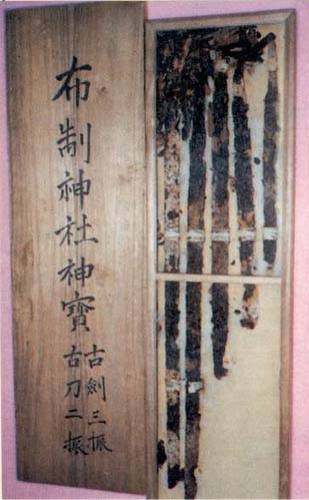 布制神社神寶
古剣三振
古刀二振